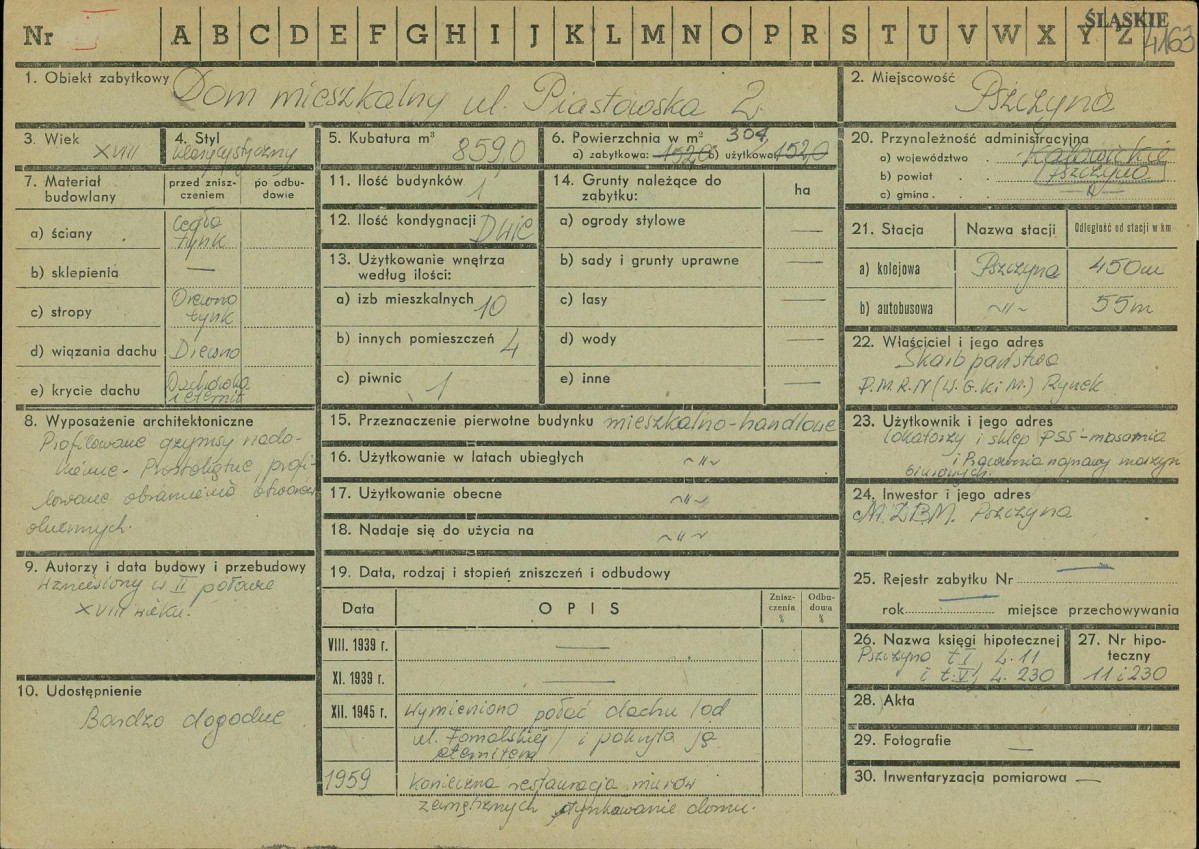 Nr A B C D E F G H I J K L M N O P R S T U V W X Y Z ŚLĄSKIE
4163
1. Obiekt zabytkowy Dom mieszkalny ul. Piastowska 2.
2. Miejscowość Pszczyna
3. Wiek XVIII
4. Styl
klasycystyczny
5. Kubatura m³ 859,0
6. Powierzchnia w m² 304,
a) zabytkowa: 152,0 b) użytkowa: 152,0
20. Przynależność administracyjna
a) województwo . Katowickie
b) powiat . . Pszczyna
c) gmina . . . — „ —
7. Materiał
budowlany
przed znisz-
czeniem
po odbu-
dowie
a) ściany cegła
tynk
b) sklepienia —
c) stropy Drewno
tynk
d) wiązania dachu Drewno
e) krycie dachu Dachówka
i eternit
8. Wyposażenie architektoniczne
Profilowane gzymsy
Prostokątne, profi-
lowane obramienia otworów
okiennych.
9. Autorzy i data budowy i przebudowy
Wzniesiony w II połowie
XVIII wieku.
10. Udostępnienie
Bardzo dogodne
11. Ilość budynków 1
12. Ilość kondygnacji Dwie
13. Użytkowanie wnętrza
według ilości:
a) izb mieszkalnych 10
b) innych pomieszczeń 4
c) piwnic 1
14. Grunty należące do
zabytku:
ha
a) ogrody stylowe —
b) sady i grunty uprawne —
c) lasy —
d) wody —
e) inne —
15. Przeznaczenie pierwotne budynku mieszkalno-handlowe
16. Użytkowanie w latach ubiegłych ~ „ ~
17. Użytkowanie obecne ~ „ ~
18. Nadaje się do użycia na ~ „ ~
19. Data, rodzaj i stopień zniszczeń i odbudowy
Data
OPIS
Znisz-
czenia
%
Odbu-
dowa
%
VIII. 1939 r. —
XI. 1939 r. —
XII. 1945 r. Wymieniono połać dachu /od
ul. / i pokryto ją
eternitem
1959 Konieczna restauracja murów
zewnętrznych, otynkowanie domu.
21. Stacja
Nazwa stacji
Odległość od stacji w km
a) kolejowa Pszczyna 450m
b) autobusowa ~ „ ~ 55m
22. Właściciel i jego adres
Skarb państwa
P.M.R.N (W.G.K.i M.) Rynek
23. Użytkownik i jego adres
lokatorzy i sklep PSS - masarnia
i Pracownia naprawy maszyn
biurowych.
24. Inwestor i jego adres
M.Z.B.M. Pszczyna
25. Rejestr zabytku Nr —
rok — miejsce przechowywania
26. Nazwa księgi hipotecznej
Pszczyna t. I, L. 11
i t. V, L. 230
27. Nr hipo-
teczny
11 i 230
28. Akta
29. Fotografie —
30. Inwentaryzacja pomiarowa —